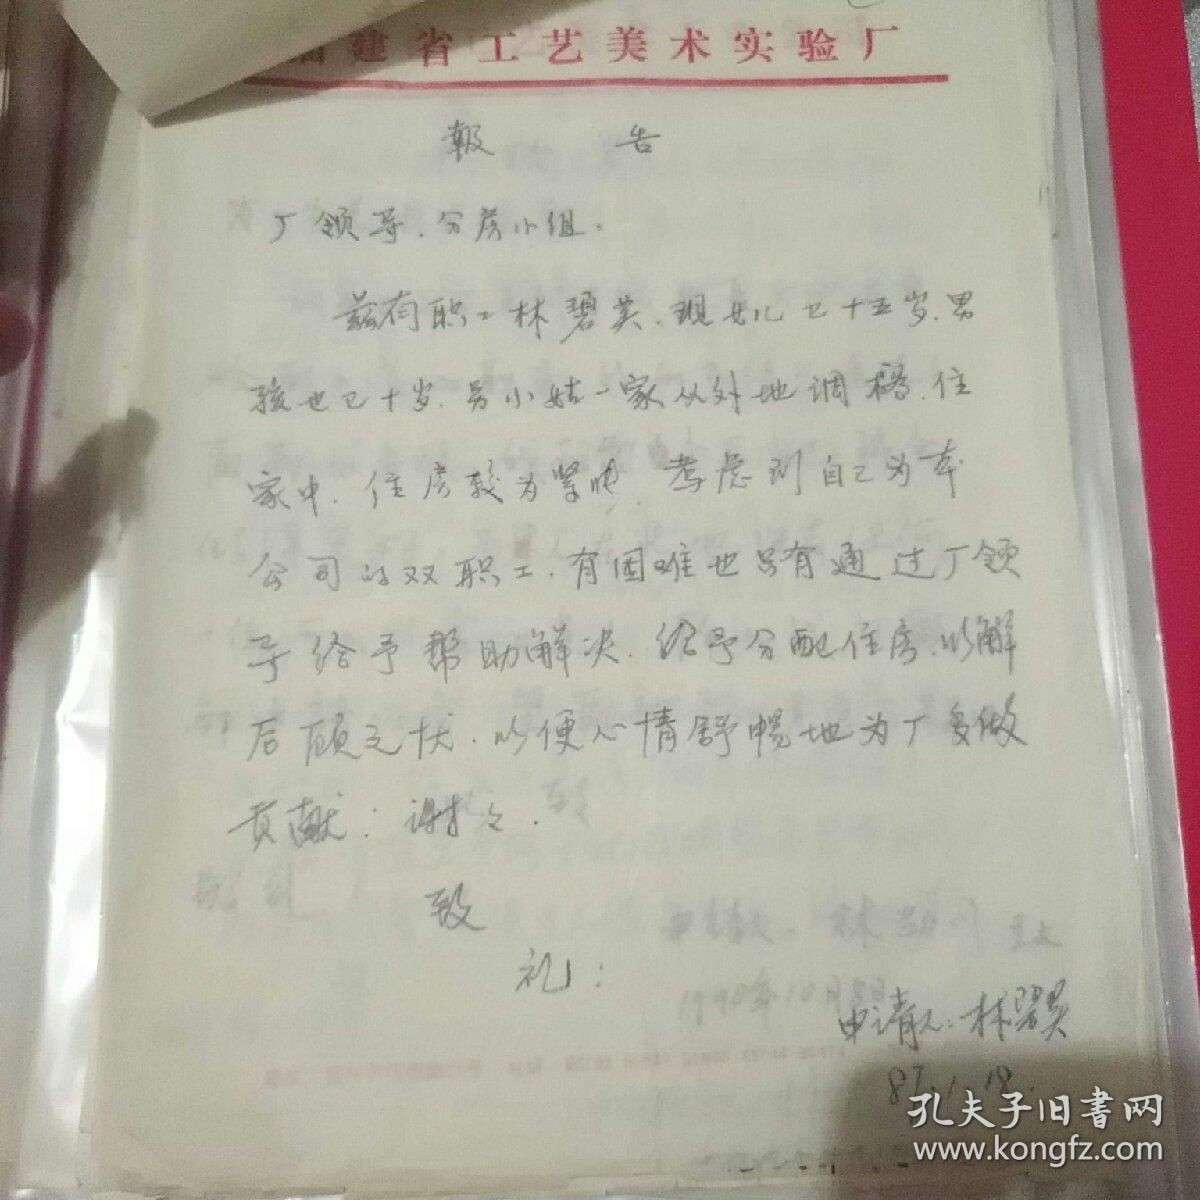 福建省工艺美术实验厂
報 告
厂领导、分房小组：
兹有职工林碧英、现女儿已十五岁、男
孩也已十岁、另小姑一家从外地调榕、住
家中、住房较为紧张、考虑到自己为本
公司的双职工、有困难也只有通过厂领
导给予帮助解决、给予分配住房、以解
后顾之忧、以便心情舒畅地为厂多做
贡献；谢谢.
致
礼：
1990年10月8日
申请人：林碧英
87.1.18.
孔夫子旧書网
www.kongfz.com